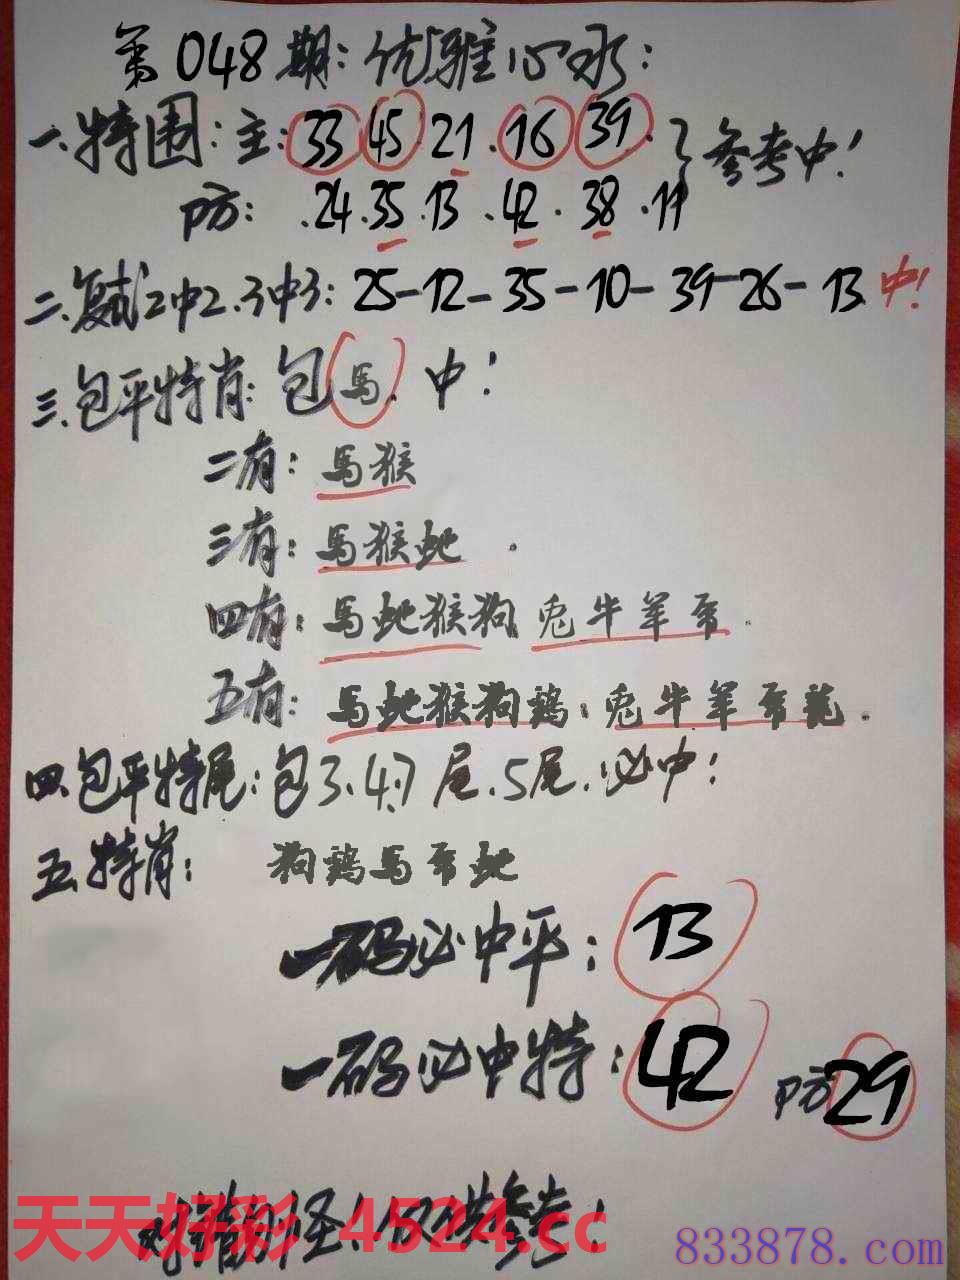 第048期:优雅心水:
一.特围:主:33 45 21.16 39.}参考中!
防:.24.35.13.42.38.11
二.复试2中2.3中3:25-12-35-10-39-26-13 中!
三.包平特肖:包馬.中!
二有:馬猴
三有:馬猴蛇.
四有:馬蛇猴狗 兔牛羊
五有:馬蛇猴狗鷄:兔牛羊 龍.
四.包平特尾:包3.4.7尾.5尾.必中!
五.特肖: 狗鷄馬 蛇
一码必中平:13
一码必中特:42 防29
怪!仅供参考!
天天好彩 4524.cc
833878.com